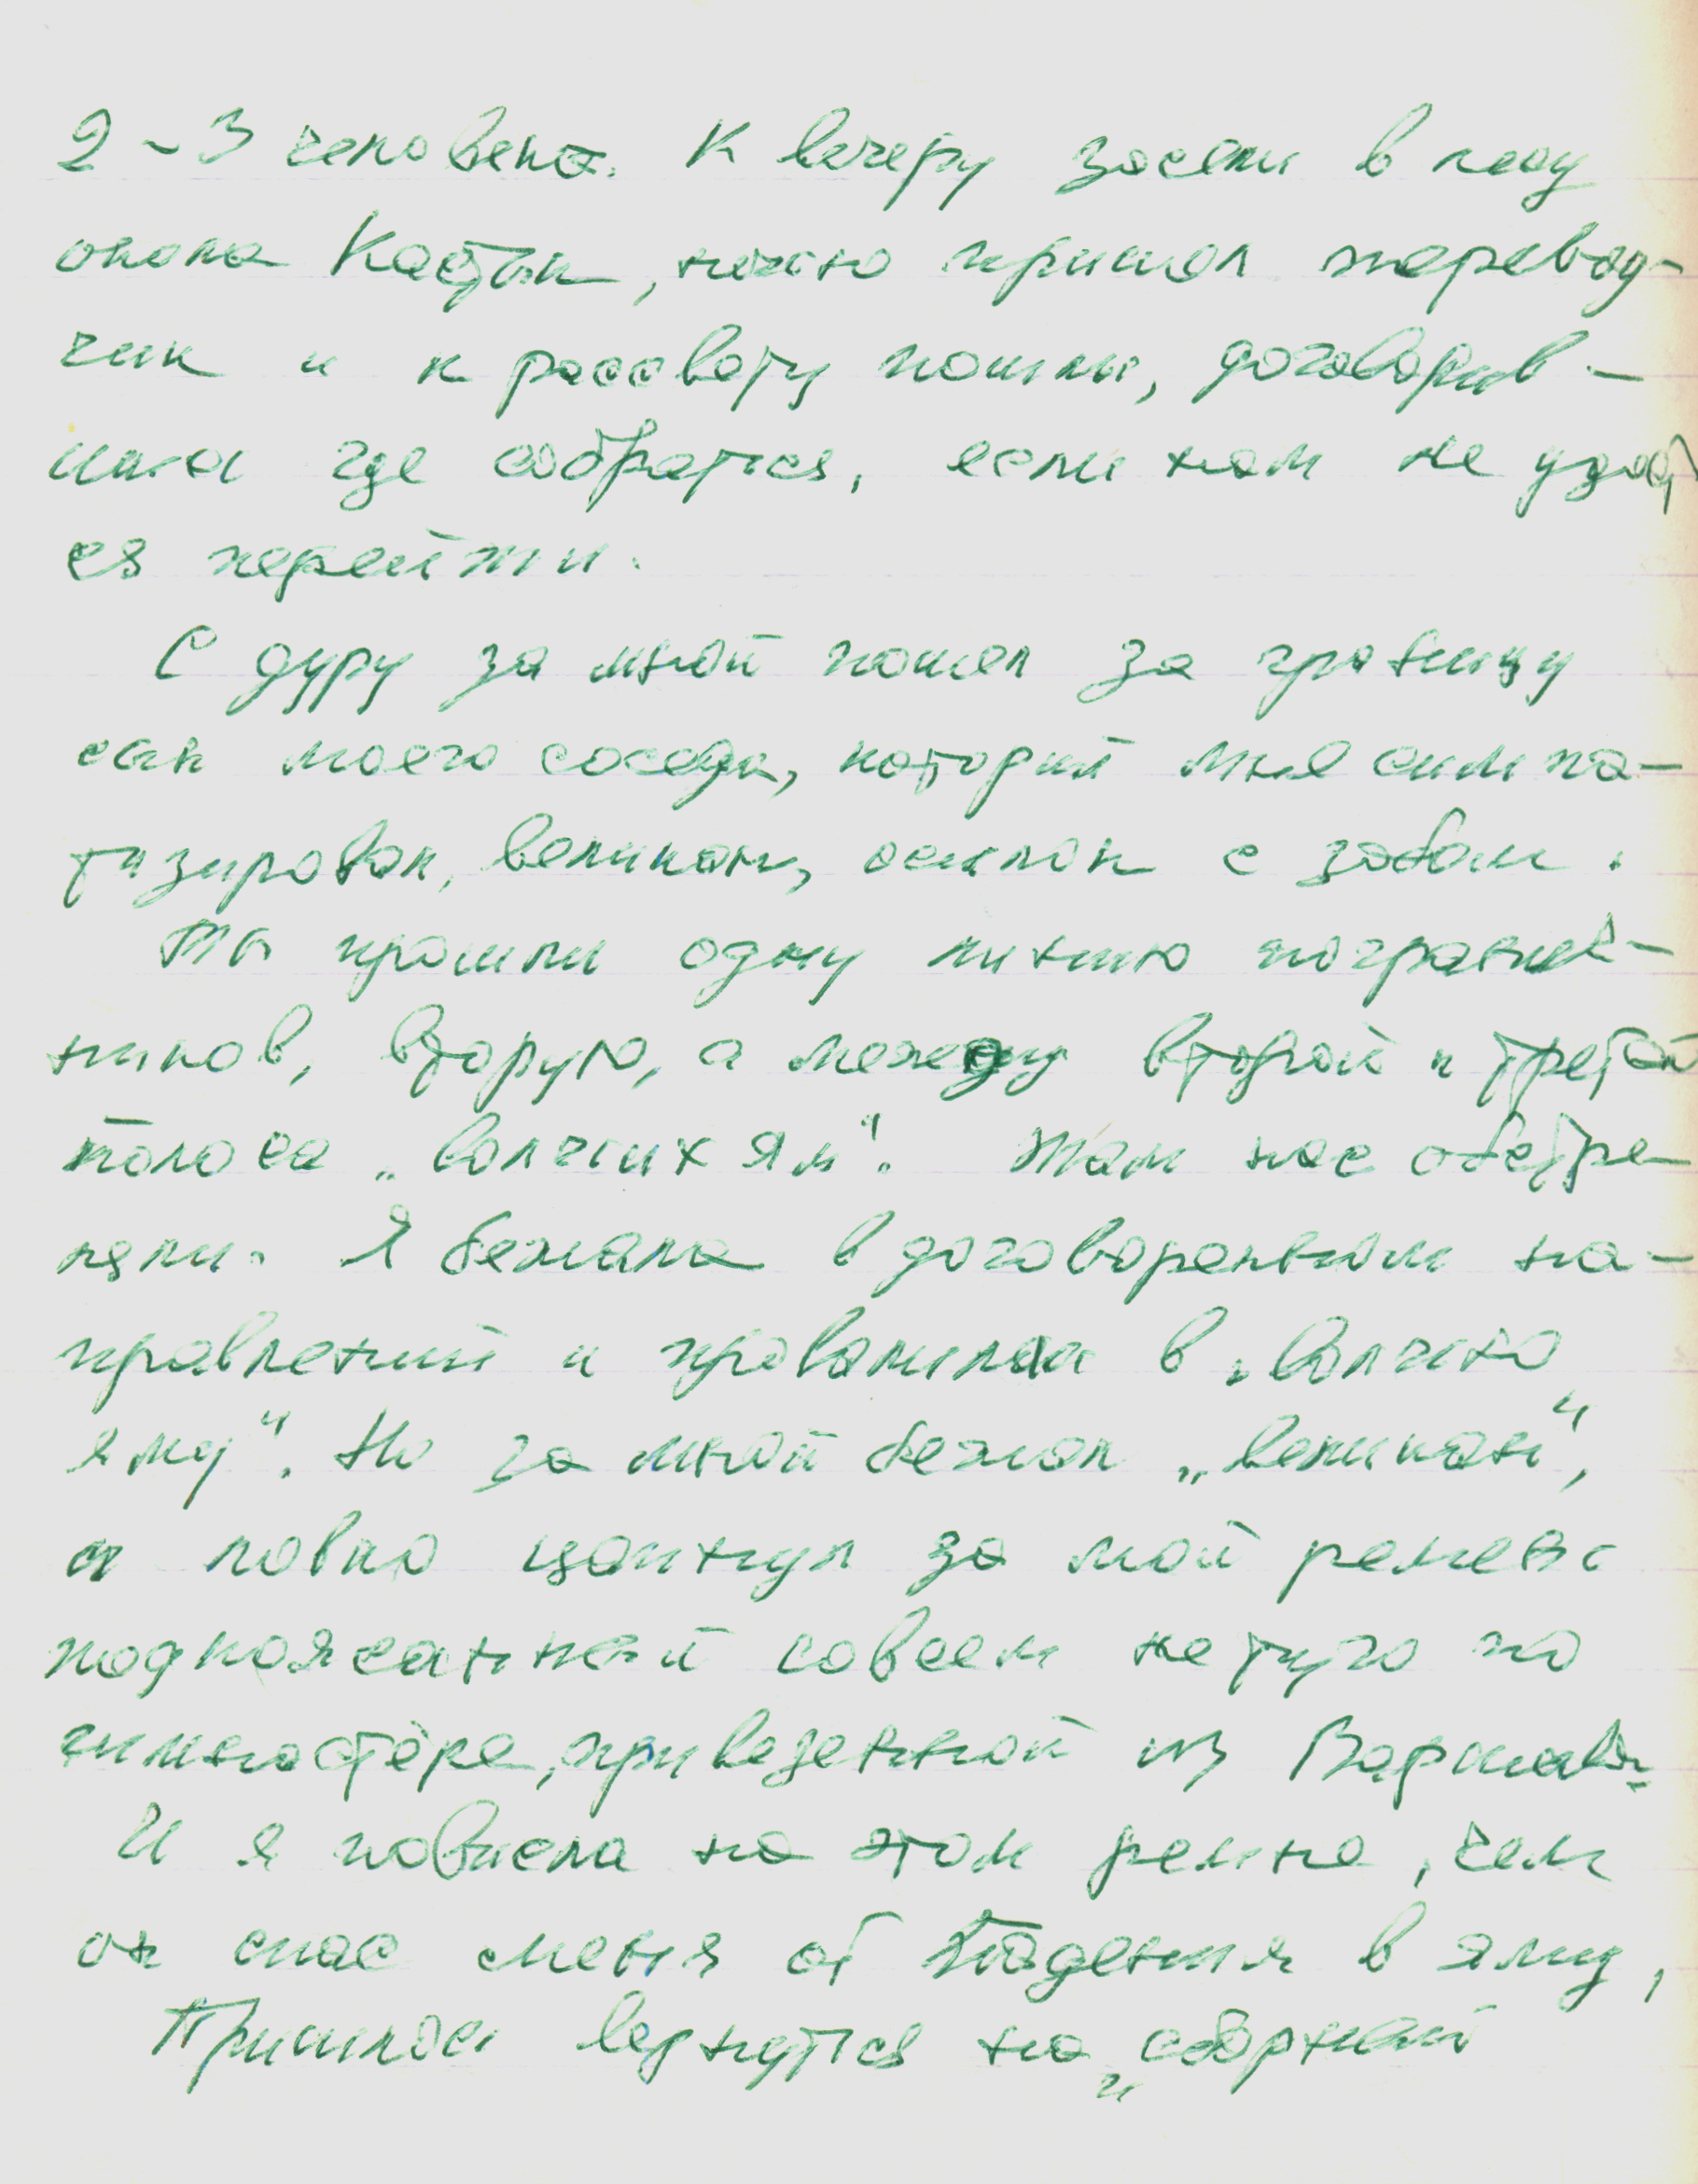 2-3 человека. К вечеру засели в лесу
около Кадыки, ночью пришол перевод-
чик и к рассвету пошли, договорив-
шися где собратся, если нам не удаст
ся перейти.
С дуру за мной пошел за границу
сын моего соседа, который мне симпа-
тизировал, великан, осилок с зубам.
Мы прошли одну линию погранич-
ников, вторую, а между второй и третьй
полоса „волчьих ям". Там нас обстре
ляли. Я бежала в договоренном на-
правлений и провалилася в „волчью
яму". Но за мной бежал „великан",
и ловко цапнул за мой ремень
подпоясанный совсем не туго по
гимнастёрке, привезенной из Варшавы.
И я повисела на этом ремне, чем
он спас меня от падения в яму,
Пришлось вернутся на „сборный